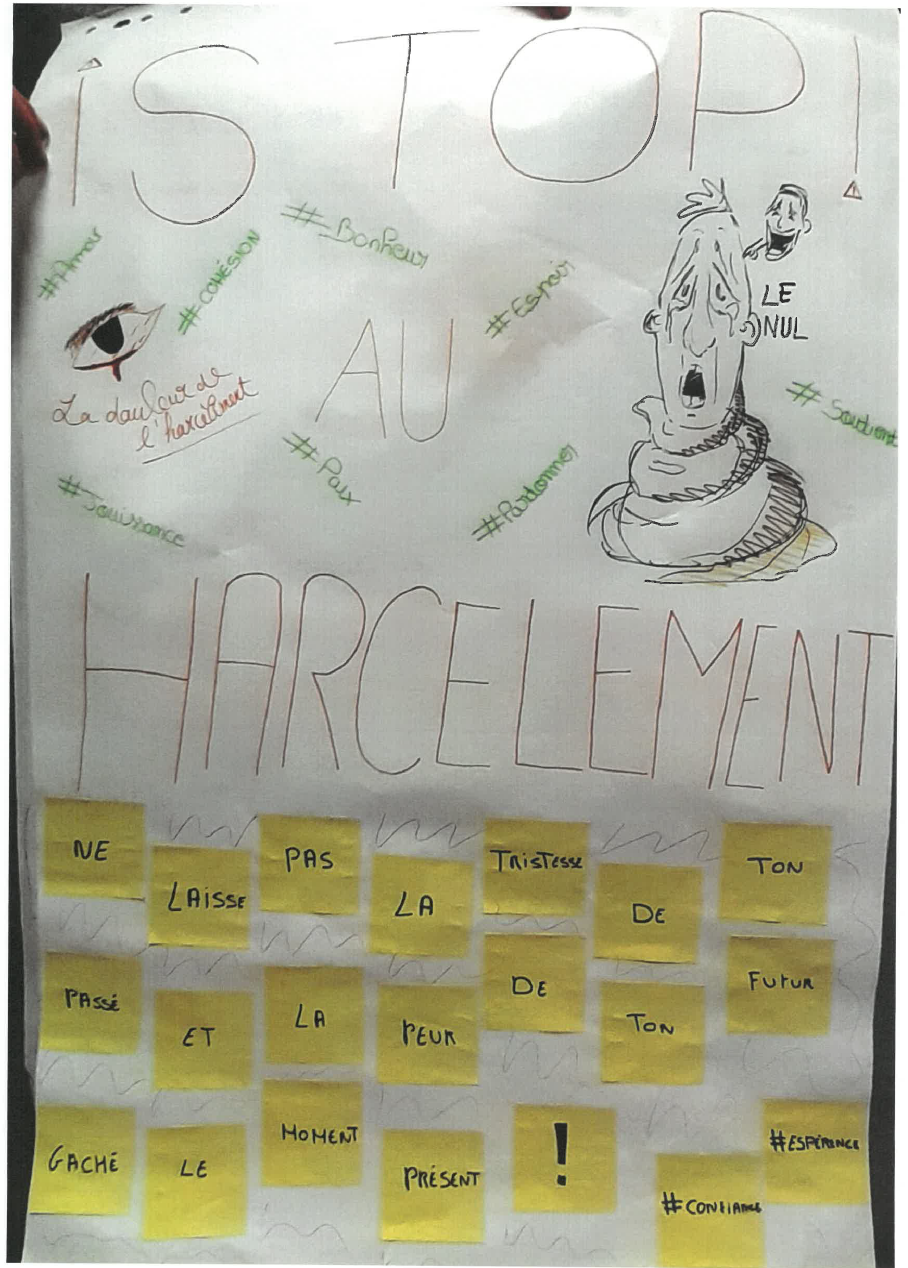 ¡STOP!
#Amour
#COHÉSION
#-Bonheur
#Espoir
LE
NUL
AU
La douleur de
l'harcèlement
# Soutient
#Paix
#Jouissance
#Pardonner
HARCELEMENT
NE LAISSE PAS LA TRISTESSE DE TON
PASSÉ ET LA PEUR DE TON FUTUR
GACHÉ LE MOMENT PRÉSENT !
#CONFIANCE
#ESPÉRENCE